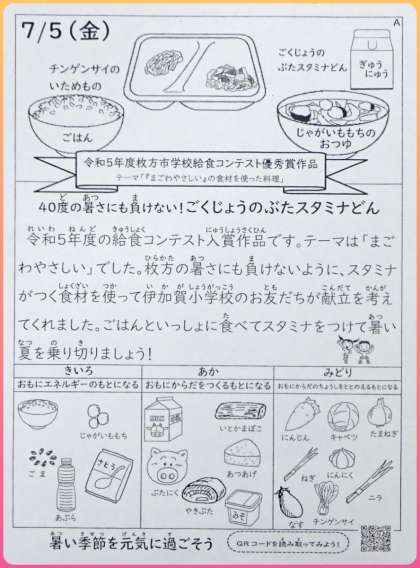 7/5(金)
A
チンゲンサイの
いためもの
ごくじょうの
ぶたスタミナどん
ぎゅう
にゅう
ごはん
じゃがいももちの
おつゆ
令和5年度枚方市学校給食コンテスト優秀賞作品
テーマ「『まごわやさしい』の食材を使った料理」
40度の暑さにも負けない!ごくじょうのぶたスタミナどん
令和5年度の給食コンテスト入賞作品です。テーマは「まご
わやさしい」でした。枚方の暑さにも負けないように、スタミナ
がつく食材を使って伊加賀小学校のお友だちが献立を考え
てくれました。ごはんといっしょに食べてスタミナをつけて暑い
夏を乗り切りましょう!
きいろ
あか
みどり
おもにエネルギーのもとになる
おもにからだをつくるもとになる
おもにからだのちょうしをととのえるもとになる
じゃがいももち
ごま
さとう
あぶら
いとかまぼこ
あつあげ
ぶたにく
やきぶた
みそ
にんじん
キャベツ
たまねぎ
ねぎ
にんにく
ニラ
なす
チンゲンサイ
暑い季節を元気に過ごそう
QRコードを読み取ってみよう!